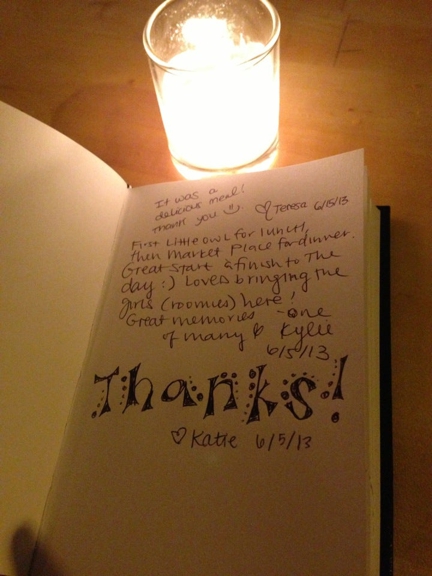 It was a
delicious meal!
Thank you ☺ ♡ Teresa 6/5/13
First Little owl for lunch,
then Market Place for dinner.
Great start & finish to the
day :) Loved bringing the
girls (roomies) here!
Great memories - one
of many ♡ Kylie
6/5/13
Thanks!
♡ Katie 6/5/13